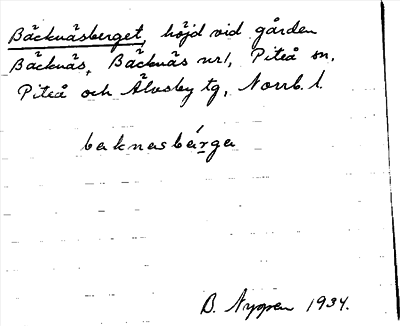 Bäcknäsberget, höjd vid gården
Bäcknäs, Bäcknäs nr 1, Piteå sn,
Piteå och Älvsby tg, Norrb. l.
baknasbärga
B. Nygren 1934.